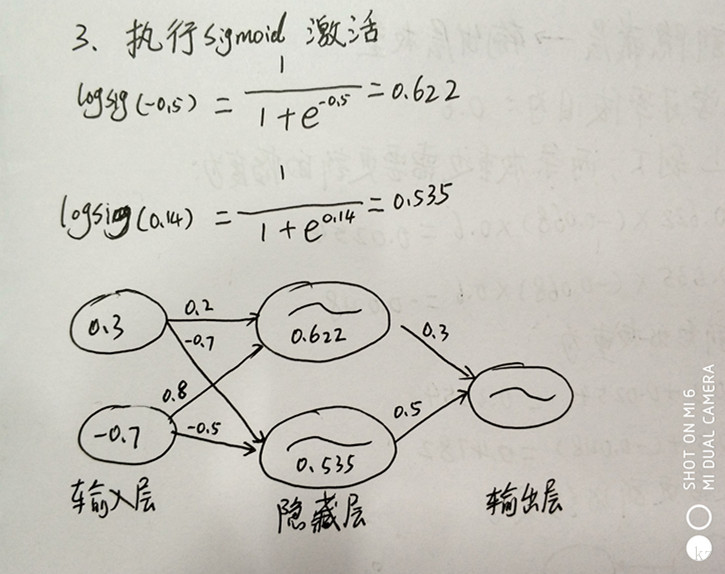 3、执行sigmoid 激活
logsig(-0.5) = 1/(1+e^-0.5) = 0.622
logsig(0.14) = 1/(1+e^0.14) = 0.535
0.3
0.2
-0.7
0.622
0.3
0.8
-0.7
-0.5
0.5
0.535
输入层
隐藏层
输出层
SHOT ON MI 6
MI DUAL CAMERA